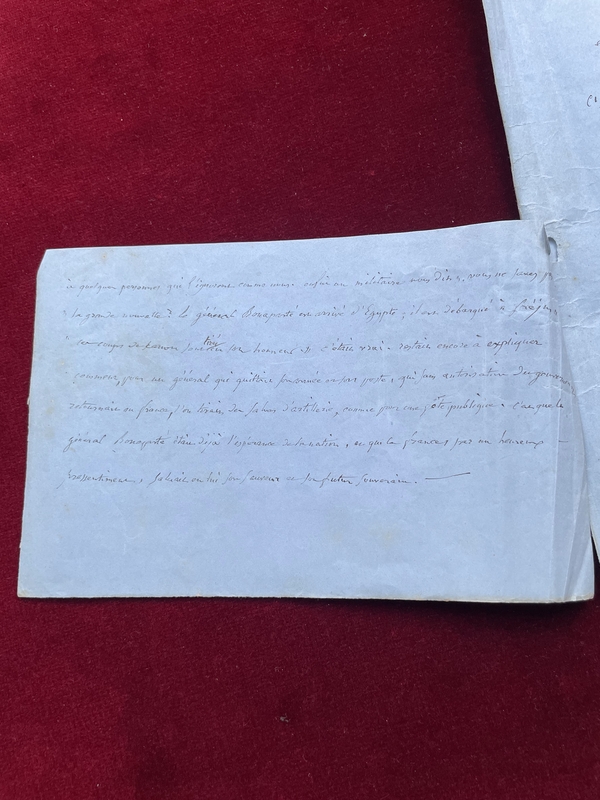 à quelques personnes qui l'ignoroient comme nous. enfin un militaire nous dit : vous ne savez pas
la grande nouvelle ? le général Bonaparté est arrivé d'Egypte ; il est débarqué à Fréjus
ces coups de canon sont tirés son honneur. c'était vrai. restait encore à expliquer
comment, pour un général qui quittait son armée ou son poste, qui sans autorisation du gouver
retournait en france, l'on tirait des salves d'artillerie, comme pour une fête publique. c'est que le
général Bonaparté était déjà l'espérance de la nation, et que la france, par un heureux
pressentiment, saluait en lui son sauveur et son futur souverain.